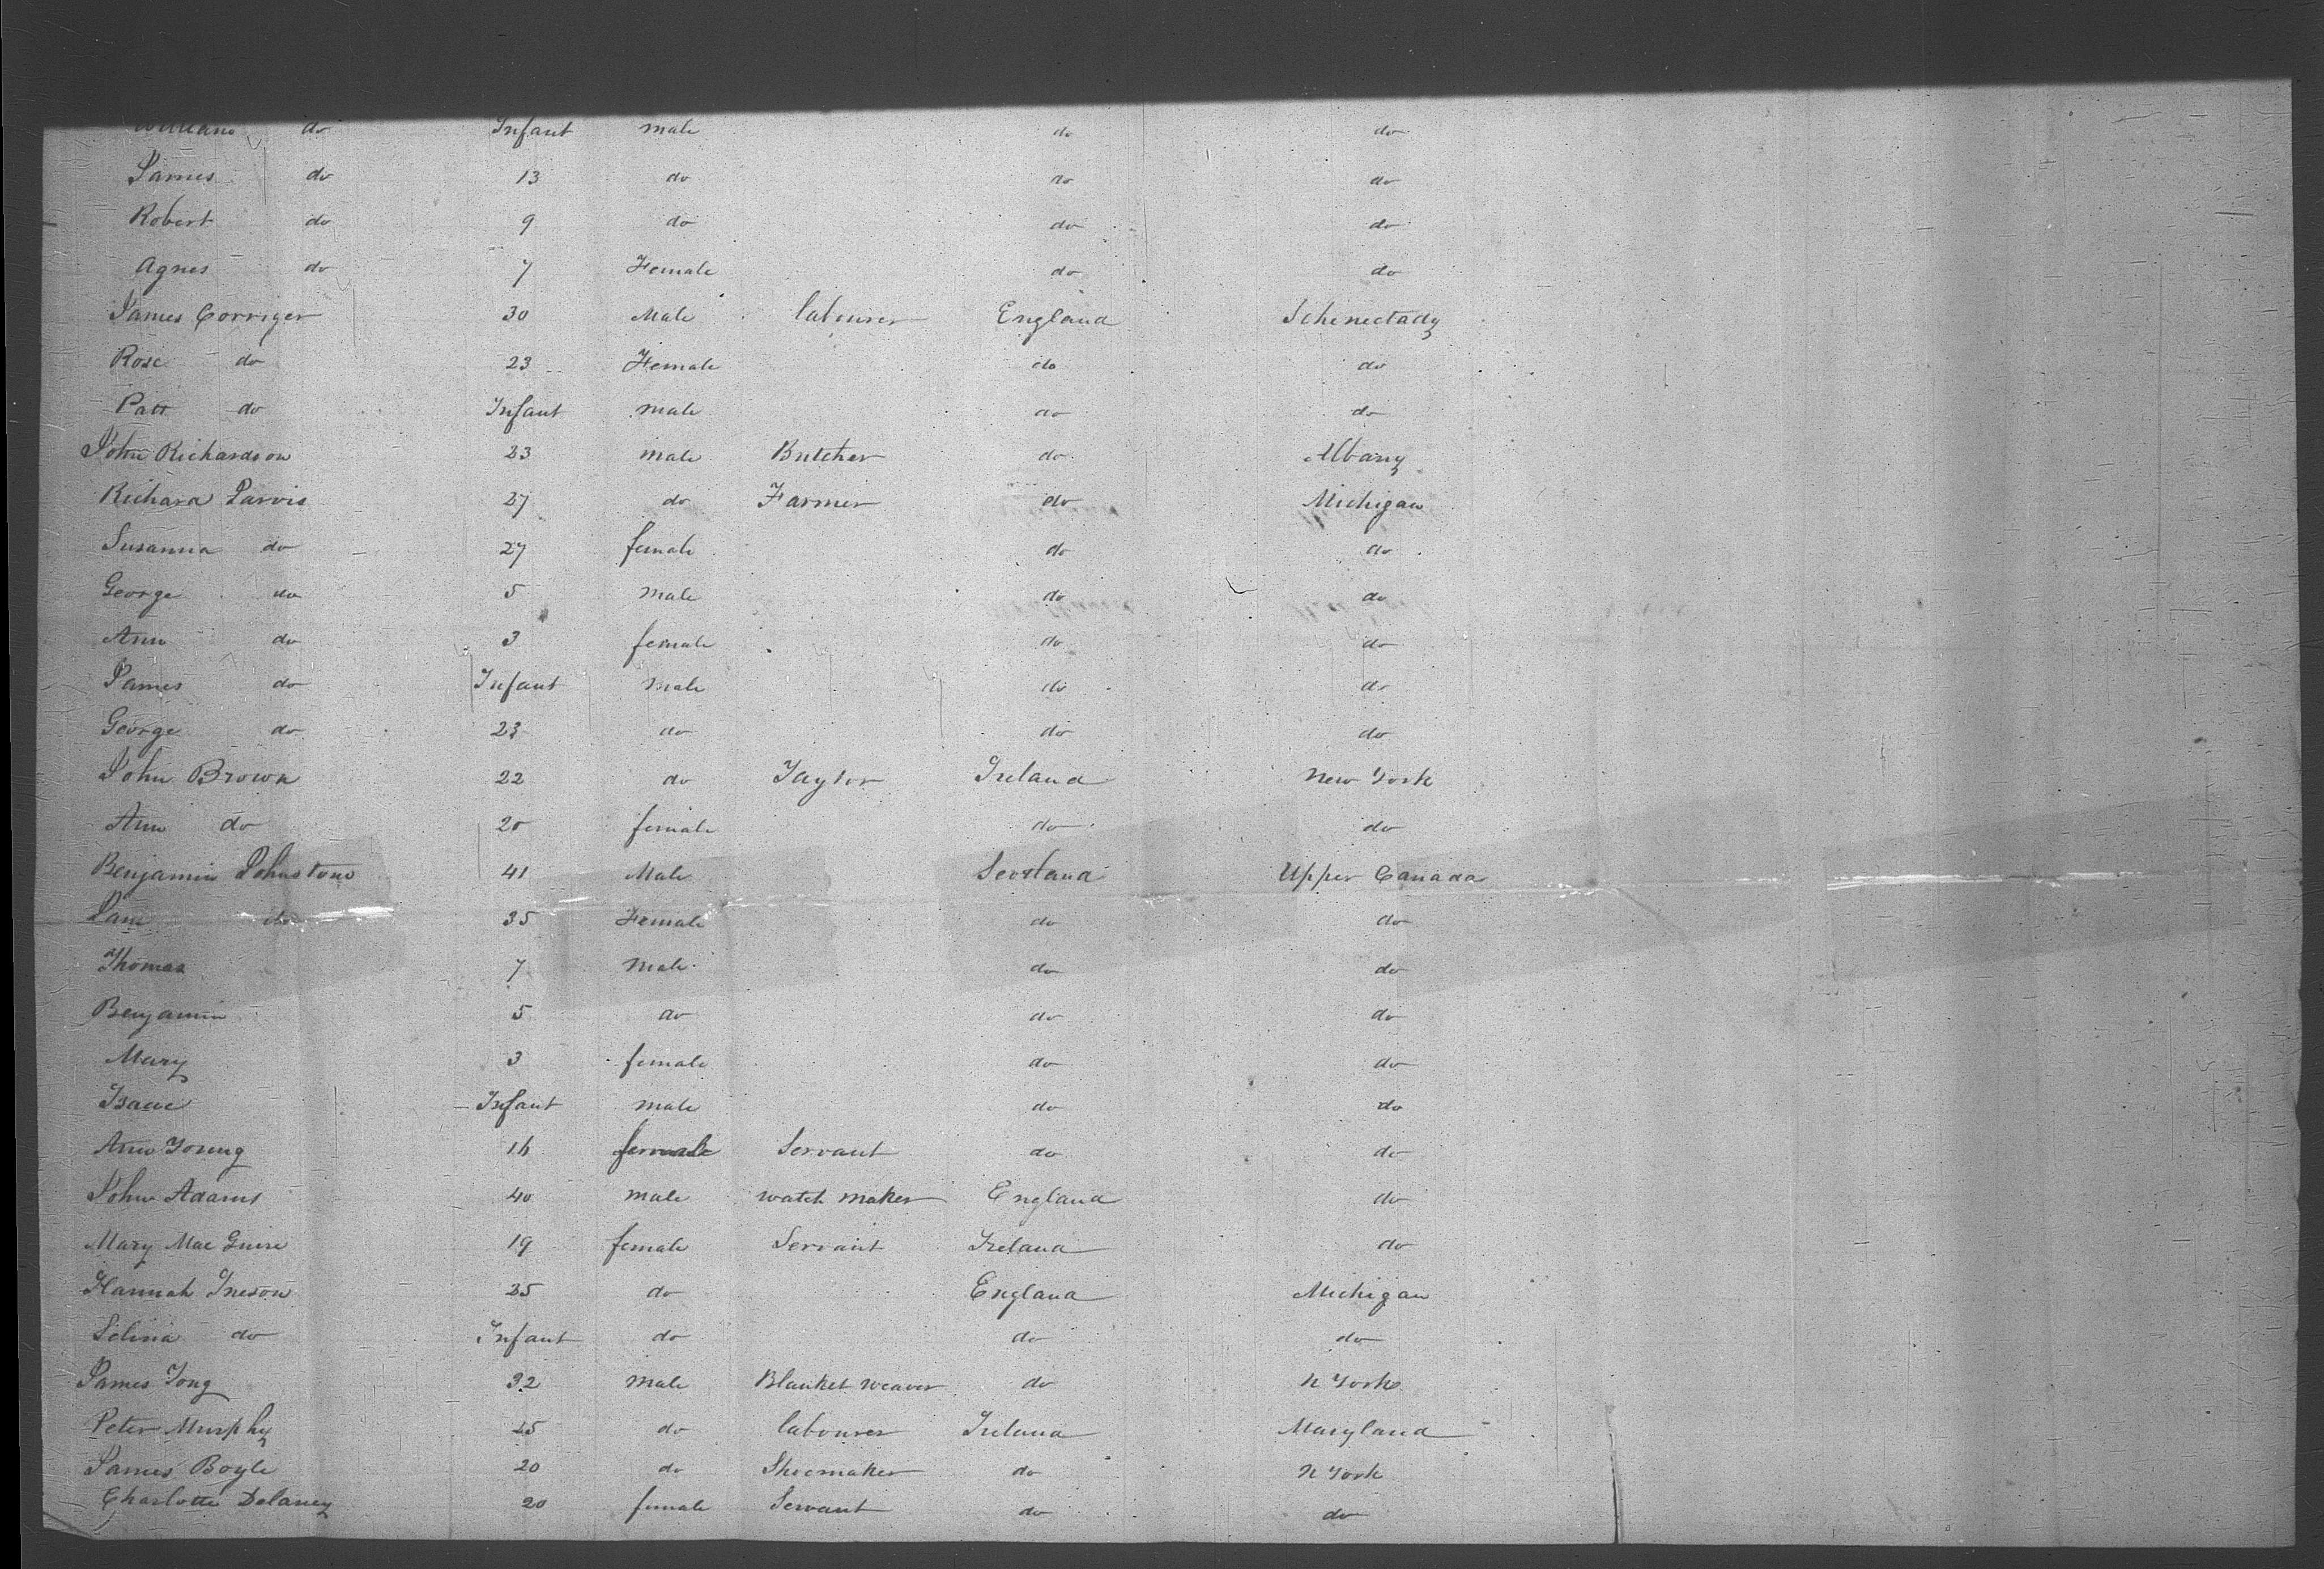 William do Infant male do do
James do 13 do do do
Robert do 9 do do do
Agnes do 7 Female do do
James Corriger 30 Male labourer England Schenectady
Rose do 23 Female do do
Patt do Infant male do do
John Richardson 23 male Butcher do Albany
Richard Jarvis 27 do Farmer do Michigan
Susanna do 27 female do do
George do 5 male do do
Ann do 3 female do do
James do Infant Male do do
George do 23 do do do
John Brown 22 do Taylor Ireland New York
Ann do 20 female do do
Benjamin Johnstone 41 Male Scotland Upper Canada
Jane do 35 Female do do
Thomas 7 Male do do
Benjamin 5 do do do
Mary 3 female do do
Isaac Infant male do do
Ann Young 16 female Servant do do
John Adams 40 male watch maker England do
Mary Mac Guire 19 female Servant Ireland do
Hannah Ineson 25 do England Michigan
Selina do Infant do do do
James Tong 32 male Blanket weaver do N York
Peter Murphy 25 do labourer Ireland Maryland
James Boyle 20 do Shoemaker do N York
Charlotte Delaney 20 female Servant do do